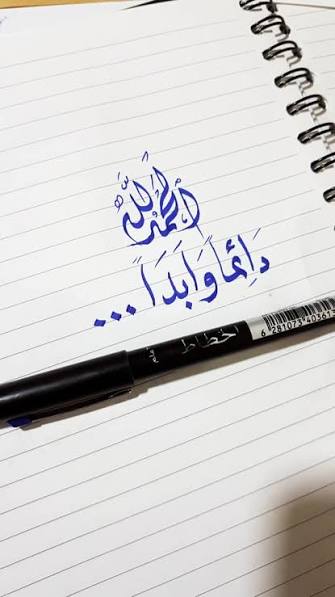 الحمد لله
دَائِماً وَ أبَدَاً...
خطاط
6 281073 403613